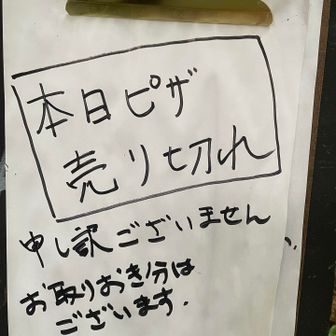 本日ピザ
売り切れ
申し訳ございません
お取りおき分は
ございます.